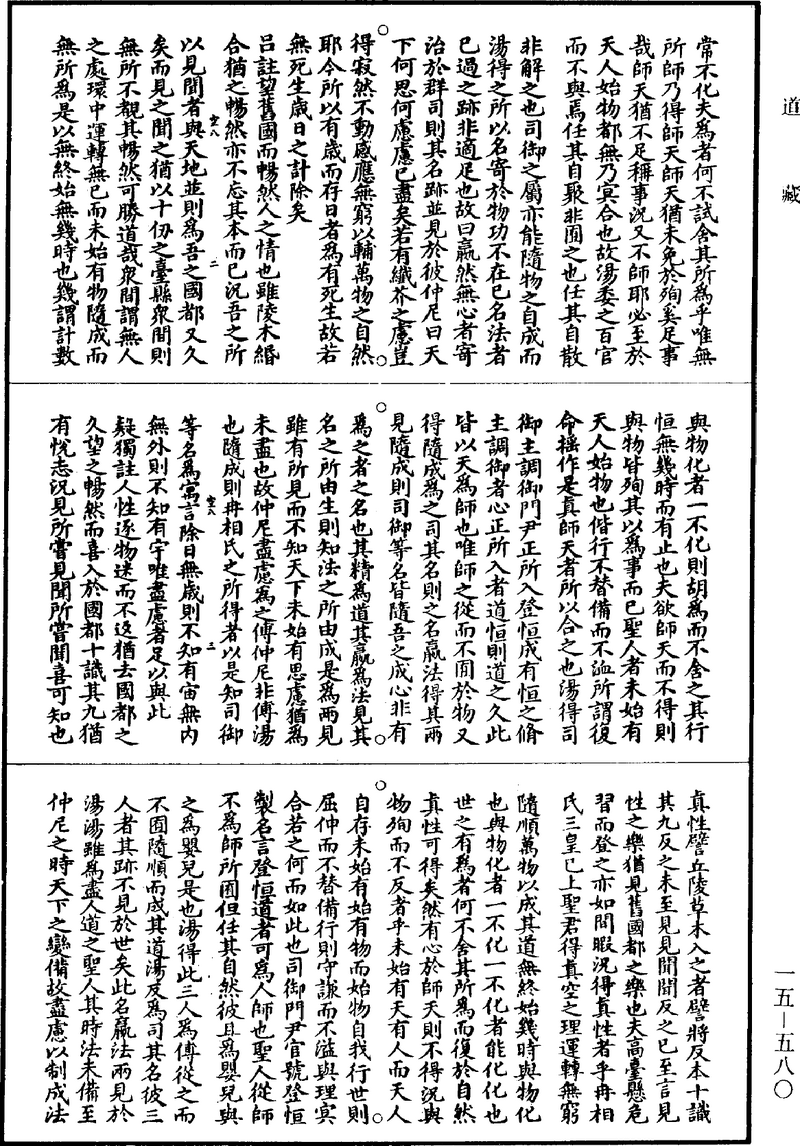 道藏
常不化夫爲者何不試舍其所爲乎唯無
所師乃得師天師天猶未免於殉奚足事
哉師天猶不足稱事況又不師耶必至於
天人始物都無乃冥合也故湯委之百官
而不與焉任其自聚非囿之也任其自散
非解之也司御之屬亦能隨物之自成而
湯得之所以名寄於物功不在已名法者
已過之跡非適足也故曰嬴然無心者寄
治於群司則其名跡並見於彼仲尼曰天
下何思何慮慮已盡矣若有纖芥之慮豈
得寂然不動感應無窮以輔萬物之自然
耶今所以有歲而存日者爲有死生故若
無死生歲日之計除矣
呂註望舊國而暢然人之情也雖陵木緡
合猶之暢然亦不忘其本而已況吾之所
以見聞者與天地並則爲吾之國都又久
矣而見之聞之猶以十仞之臺縣衆間則
無所不覩其暢然可勝道哉衆間謂無人
之處環中運轉無已而未始有物隨成而
無所爲是以無終始無幾時也幾謂計數
與物化者一不化則胡爲而不舍之其行
恒無幾時而有止也夫欲師天而不得則
與物皆殉其以爲事而已聖人者未始有
天人始物也偕行不替備而不洫所謂復
命搖作是真師天者所以合之也湯得司
御主調御門尹正所入登恒成有恒之脩
主調御者心正所入者道恒則道之久此
皆以天爲師也唯師之從而不囿於物又
得隨成爲之司其名則之名嬴法得其兩
見隨成則司御等名皆隨吾之成心非有
爲之者之名也其精爲道其嬴爲法見其
名之所由生則知法之所由成是爲兩見
雖有所見而不知天下未始有思慮猶爲
未盡也故仲尼盡慮爲之傅仲尼非傅湯
也隨成則冉相氏之所得者以是知司御
等名爲寓言除日無歲則不知有宙無內
無外則不知有宇唯盡慮者足以與此
疑獨註人性逐物迷而不返猶去國都之
久望之暢然而喜入於國都十識其九猶
有悅志況見所嘗見聞所嘗聞喜可知也
真性譬丘陵草木入之者譬將反本十識
其九反之未至見見聞聞反之已至言見
性之樂猶見舊國都之樂也夫高臺懸危
習而登之亦如間暇況得真性者乎冉相
氏三皇已上聖君得真空之理運轉無窮
隨順萬物以成其道無終始幾時與物化
也與物化者一不化一不化者能化化也
世之有爲者何不舍其所爲而復於自然
真性可得矣然有心於師天則不得況與
物殉而不反者乎未始有天有人而天人
自存未始有始有物而始物自我行世則
屈伸而不替備行則守謙而不溢與理冥
合若之何而如此也司御門尹官號登恒
製名言登恒道者可爲人師也聖人從師
不爲師所囿但任其自然彼且爲嬰兒與
之爲嬰兒是也湯得此三人爲傅從之而
不囿隨順而成其道湯反爲司其名彼三
人者其跡不見於世矣此名嬴法兩見於
湯湯雖爲盡人道之聖人其時法未備至
仲尼之時天下之變備故盡慮以制成法
一五—五八〇